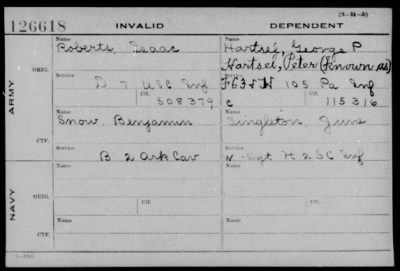 (3-14-5)
126618 INVALID DEPENDENT
Name Name
Roberts, Isaac Hartsel, George P
Hartsel, Peter (Known as)
ORIG. Service Service
D 7 USC Inf F 63 & H 105 Pa Inf
Ctf. Ctf.
508379 C 115316
ARMY
Name Name
Snow, Benjamin Singleton, June
CTF. Service Service
B 2 Ark Cav Sgt H 2 SC Inf
Name Name
ORIG. Service Service
Ctf. Ctf.
NAVY
Name Name
CTF. Service Service